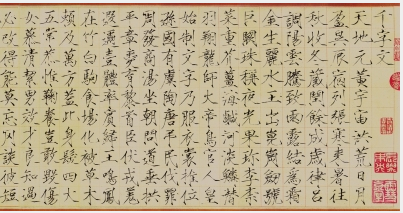 千字文
天地元黃宇宙洪荒日月
盈昃辰宿列張寒來暑往
秋收冬藏閏餘成歲律呂
調陽雲騰致雨露結為霜
金生麗水玉出崑岡劍號
巨闕珠稱夜光果珍李柰
菜重芥薑海鹹河淡鱗潛
羽翔龍師火帝鳥官人皇
始制文字乃服衣裳推位
遜國有虞陶唐弔民伐罪
周發商湯坐朝問道垂拱
平章愛育黎首臣伏戎羌
遐邇壹體率賓歸王鳴鳳
在竹白駒食場化被草木
賴及萬方蓋此身髮四大
五常恭惟鞠養豈敢毀傷
女慕清潔男效才良知過
必改得能莫忘罔談彼短